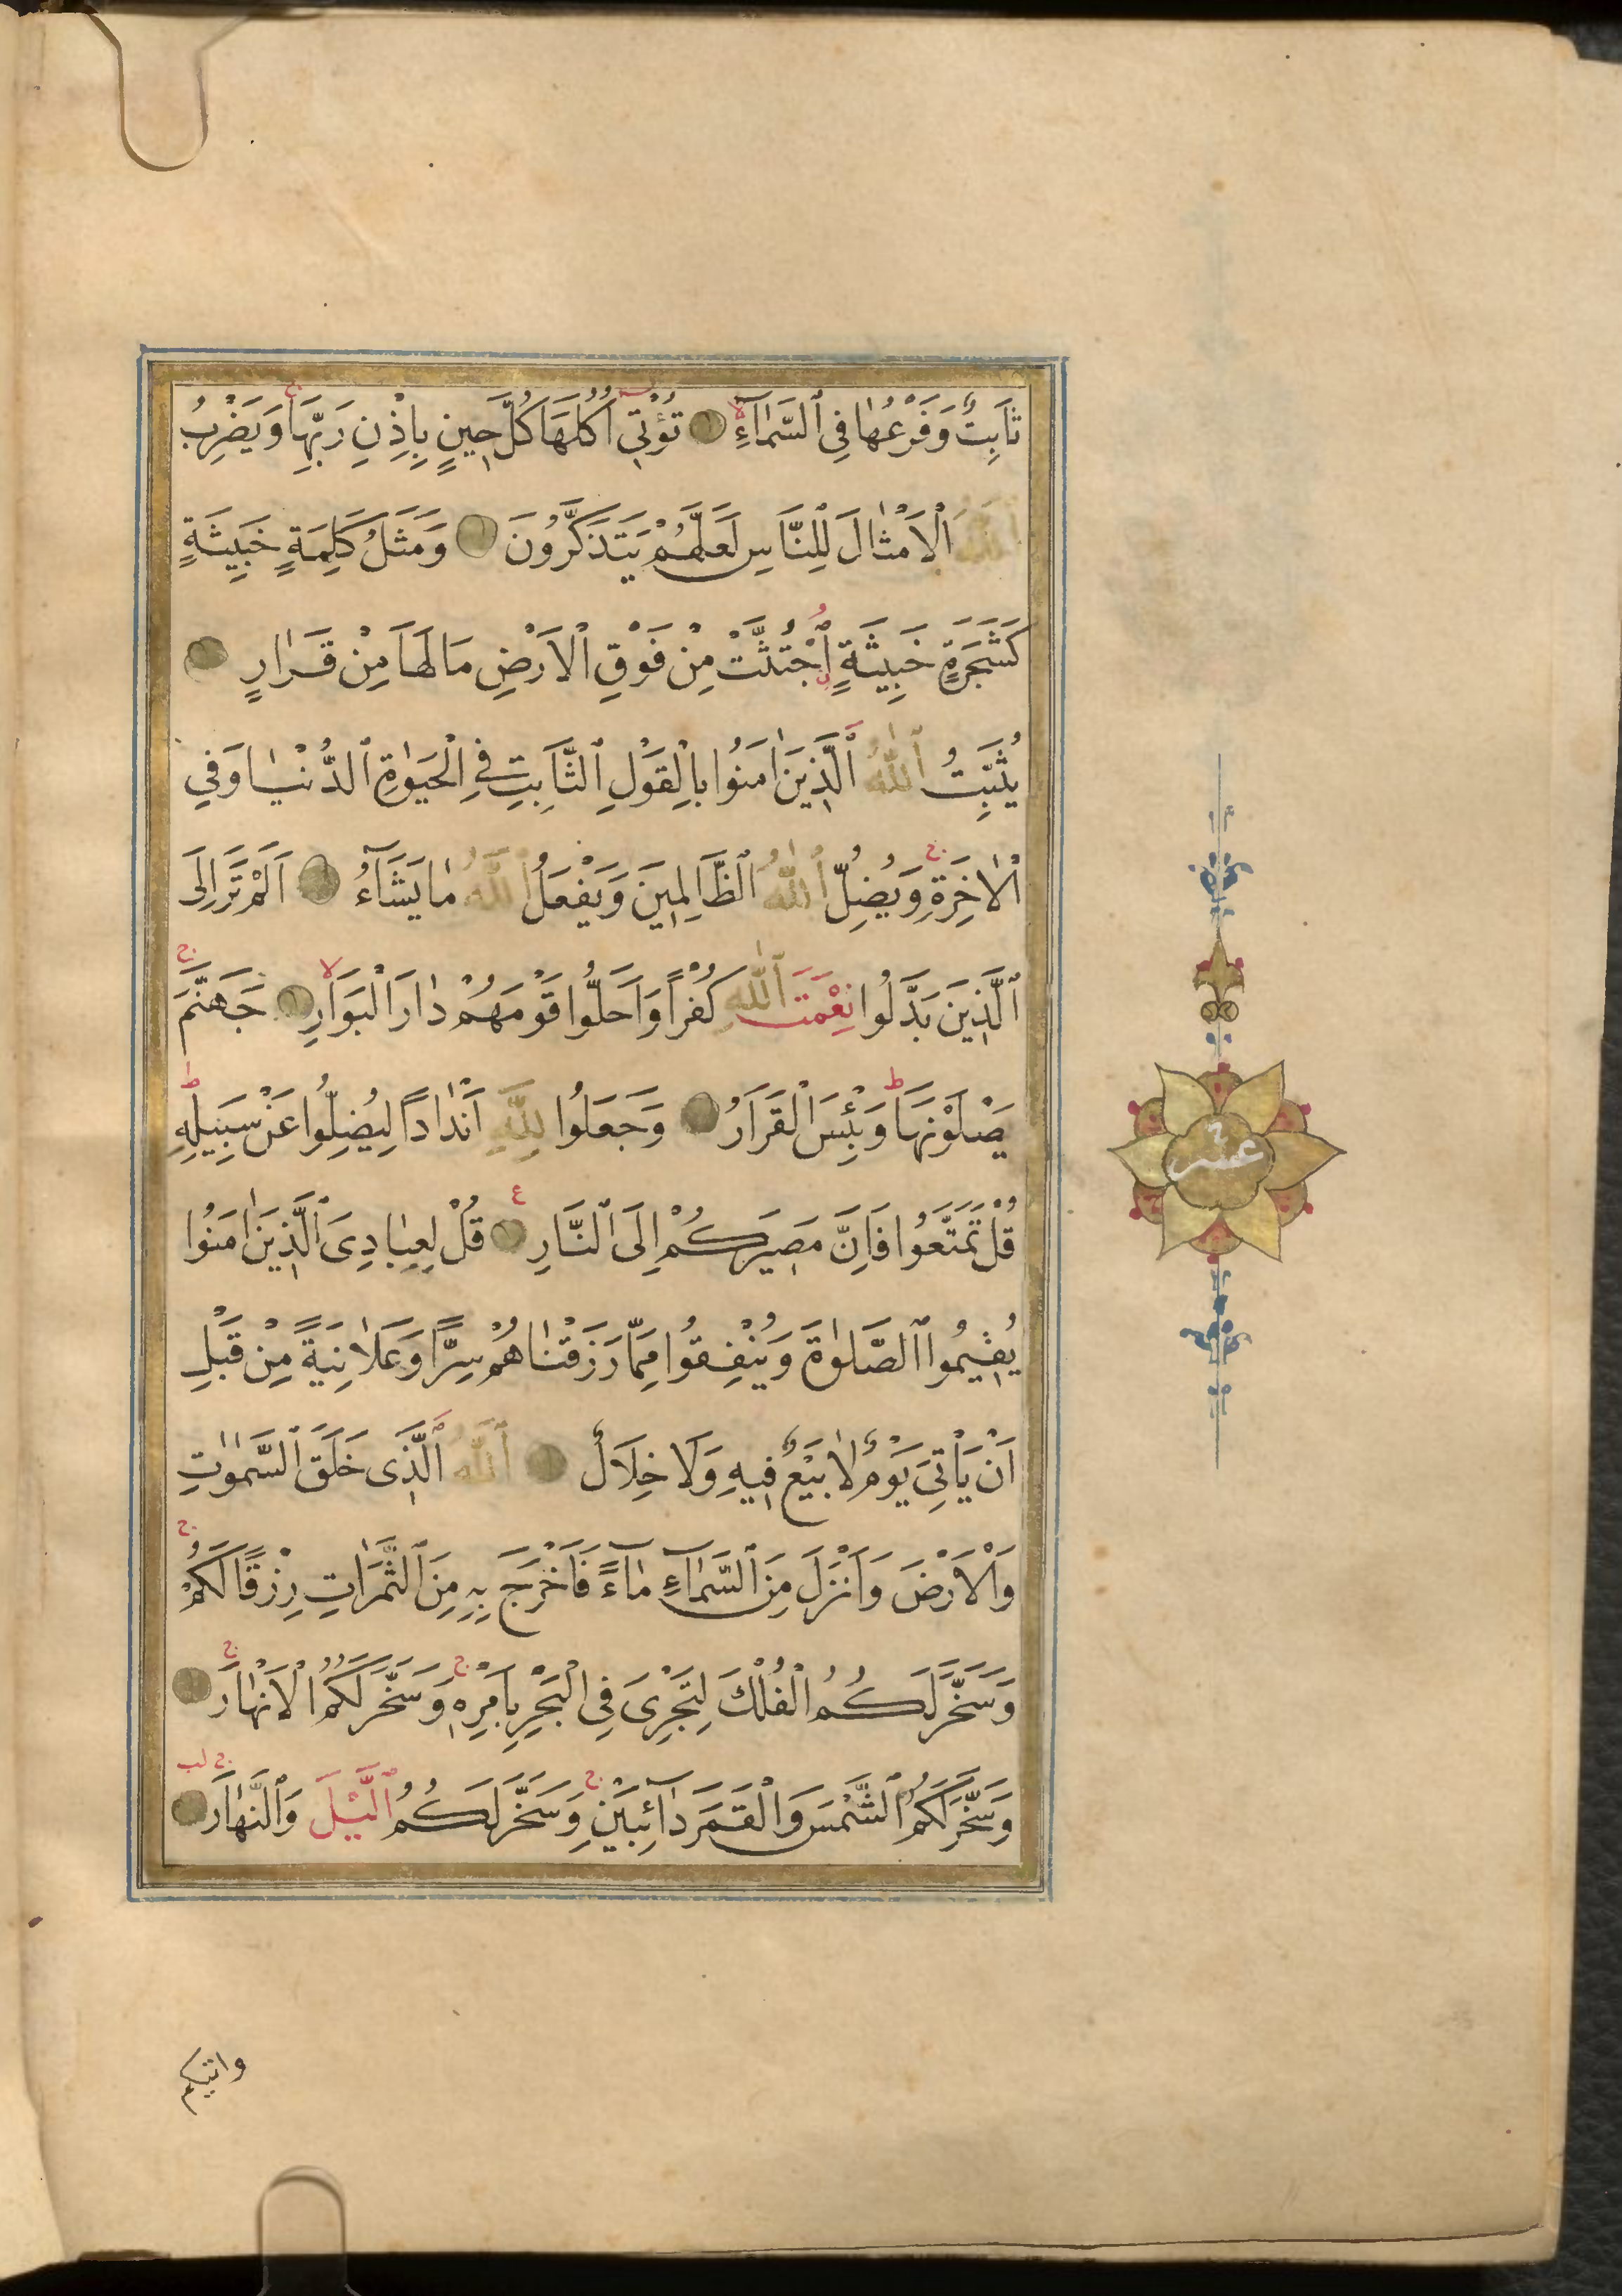 ثَابِتٌ وَفَرْعُهَا فِي ٱلسَّمَآءِ تُؤْتِي اُكُلَهَا كُلَّ حِينٍ بِاِذْنِ رَبِّهَا وَيَضْرِبُ
ٱللّٰهُ الْاَمْثَالَ لِلنَّاسِ لَعَلَّهُمْ يَتَذَكَّرُونَ وَمَثَلُ كَلِمَةٍ خَبِيثَةٍ
كَشَجَرَةٍ خَبِيثَةٍ اجْتُثَّتْ مِنْ فَوْقِ الْاَرْضِ مَا لَهَا مِنْ قَرَارٍ
يُثَبِّتُ ٱللّٰهُ ٱلَّذِينَ اٰمَنُوا بِالْقَوْلِ ٱلثَّابِتِ فِي الْحَيٰوةِ ٱلدُّنْيَا وَفِي
الْاٰخِرَةِ وَيُضِلُّ ٱللّٰهُ ٱلظَّالِمِينَ وَيَفْعَلُ ٱللّٰهُ مَا يَشَآءُ اَلَمْ تَرَ اِلَى
ٱلَّذِينَ بَدَّلُوا نِعْمَتَ ٱللّٰهِ كُفْرًا وَاَحَلُّوا قَوْمَهُمْ دَارَ الْبَوَارِ جَهَنَّمَ
يَصْلَوْنَهَا وَبِئْسَ الْقَرَارُ وَجَعَلُوا لِلّٰهِ اَنْدَادًا لِيُضِلُّوا عَنْ سَبِيلِهِ
قُلْ تَمَتَّعُوا فَاِنَّ مَصِيرَكُمْ اِلَى ٱلنَّارِ قُلْ لِعِبَادِيَ ٱلَّذِينَ اٰمَنُوا
يُقِيمُوا ٱلصَّلٰوةَ وَيُنْفِقُوا مِمَّا رَزَقْنَاهُمْ سِرًّا وَعَلَانِيَةً مِنْ قَبْلِ
اَنْ يَأْتِيَ يَوْمٌ لَا بَيْعٌ فِيهِ وَلَا خِلَالٌ ٱللّٰهُ ٱلَّذِي خَلَقَ ٱلسَّمٰوٰتِ
وَالْاَرْضَ وَاَنْزَلَ مِنَ ٱلسَّمَآءِ مَآءً فَاَخْرَجَ بِهِ مِنَ ٱلثَّمَرَاتِ رِزْقًا لَكُمْ
وَسَخَّرَ لَكُمُ الْفُلْكَ لِتَجْرِيَ فِي الْبَحْرِ بِاَمْرِهِ وَسَخَّرَ لَكُمُ الْاَنْهَارَ
وَسَخَّرَ لَكُمُ ٱلشَّمْسَ وَالْقَمَرَ دَآئِبَيْنِ وَسَخَّرَ لَكُمُ ٱلَّيْلَ وَٱلنَّهَارَ
عشر
واتيكم